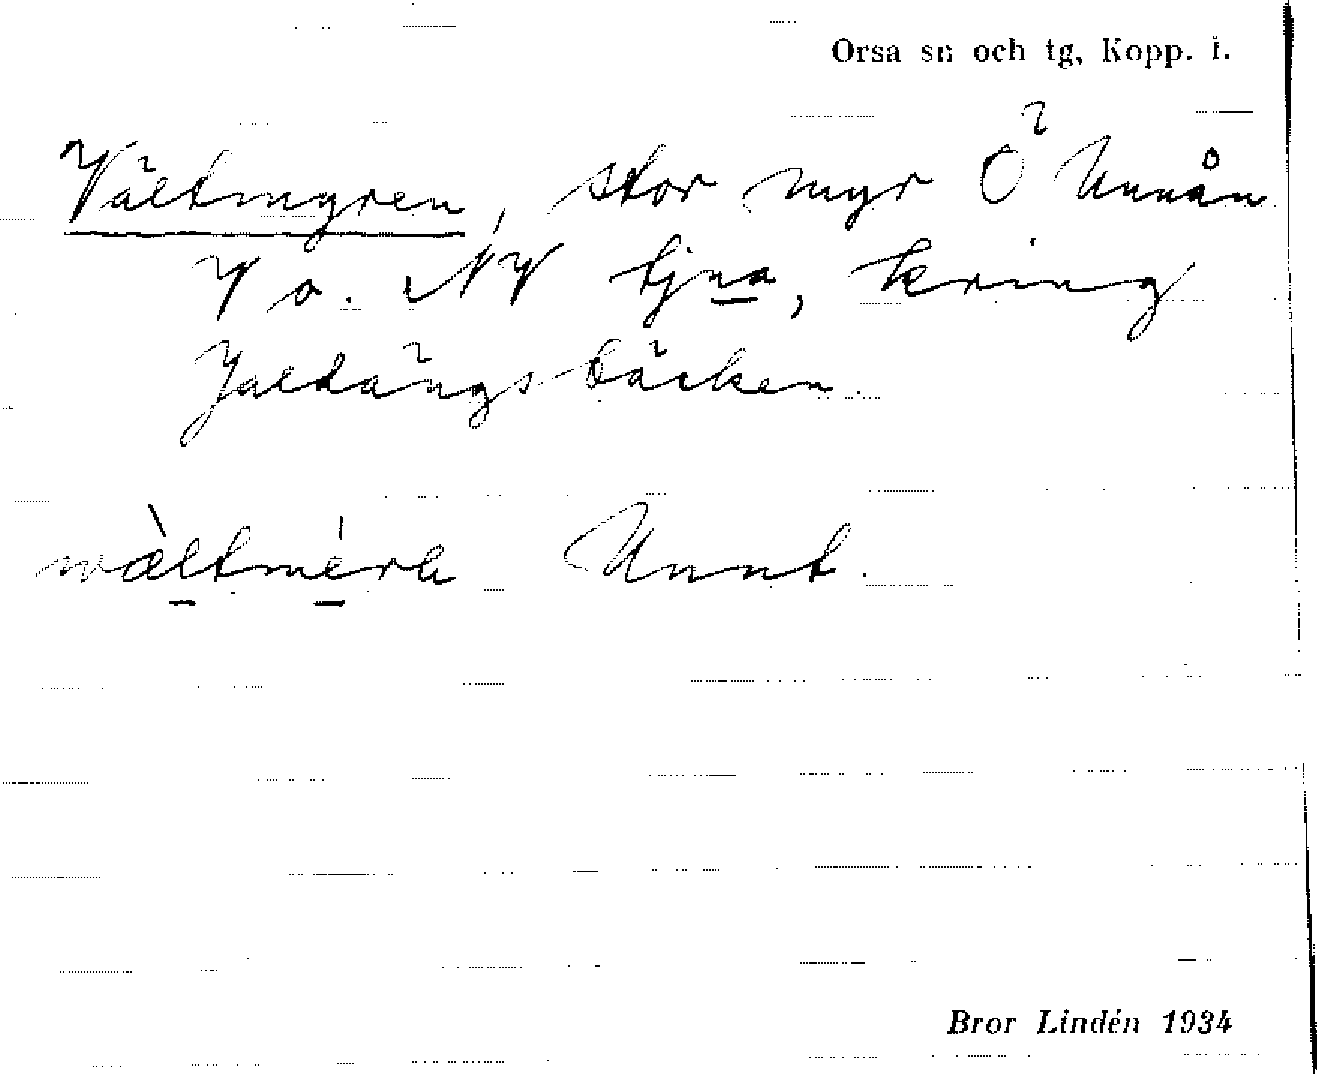 Orsa sn och tg, Kopp. l.
Vältmyren, stor myr Ö Unnån
V o. NV tjna, kring
Jaldängsbäcken.
wàltmérn Unnt.
Bror Lindén 1934